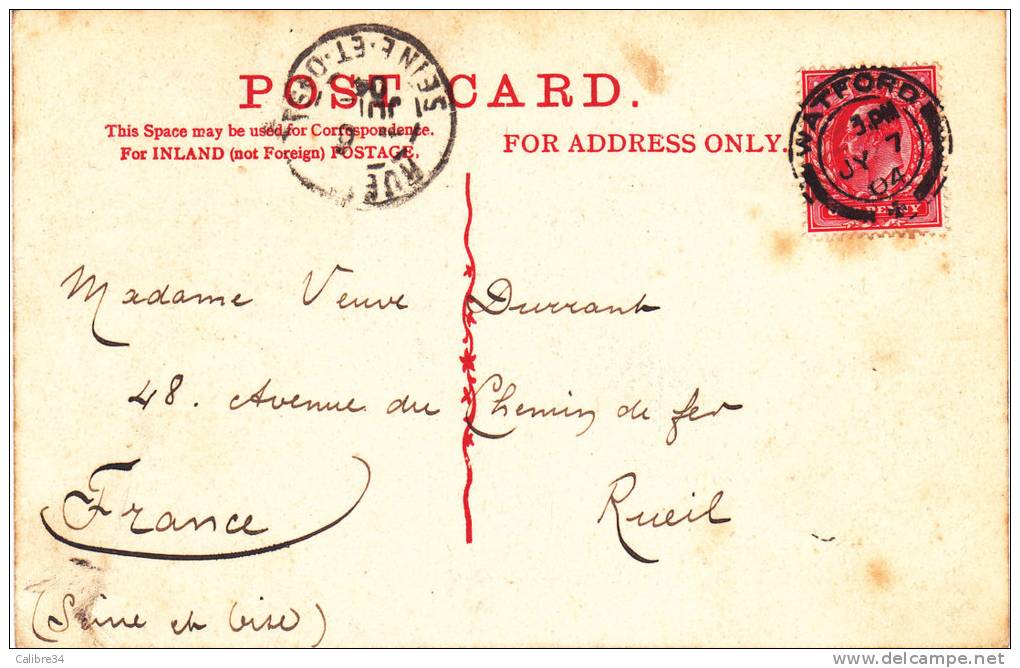 POST CARD.
This Space may be used for Correspondence.
For INLAND (not Foreign) POSTAGE.
FOR ADDRESS ONLY.
SEINE-ET-O
RUE
WATFORD
3.PM
JY 7
04
Madame Veuve Durrant
48. Avenue du Chemin de fer
Rueil
France
(Seine et Oise)
Calibre34
www.delcampe.net